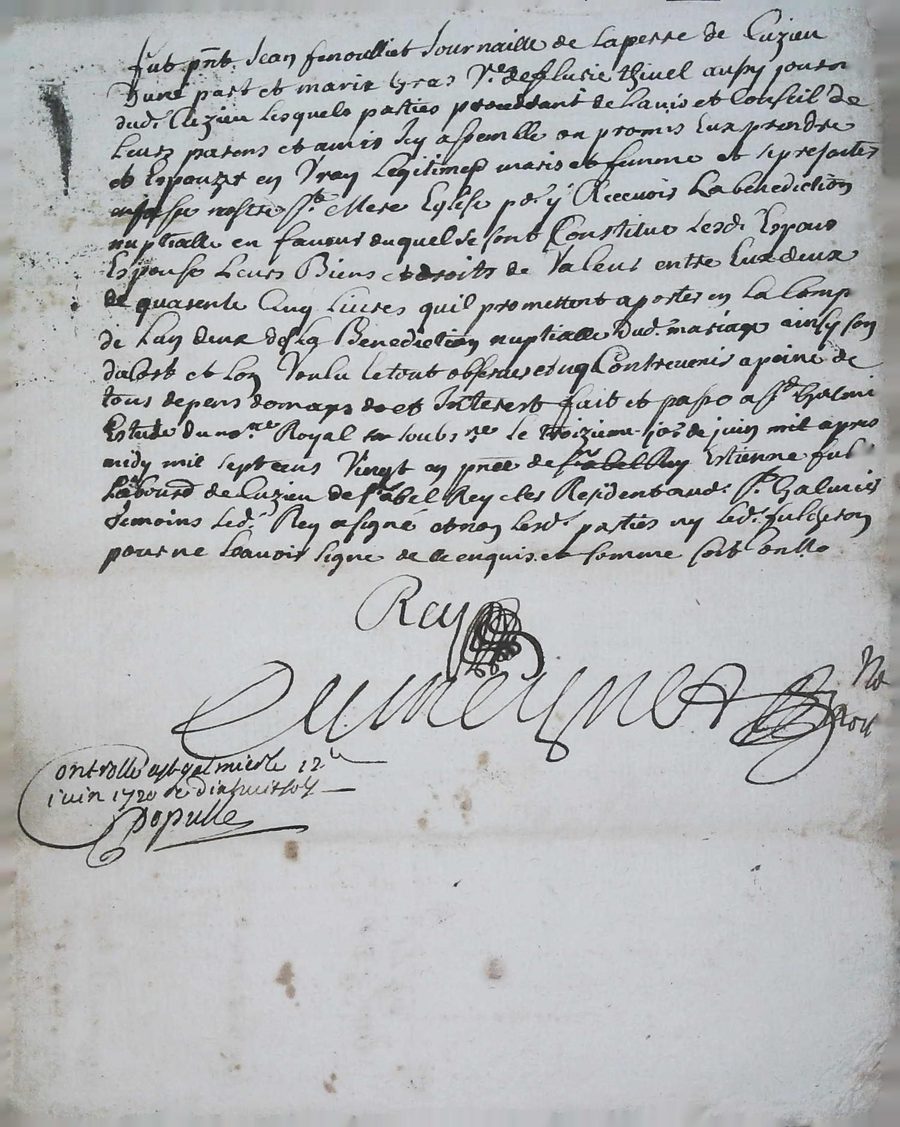 fut pnt Jean fenoulliet Journallie de laperre de Cuzieu
dune part et marie Gras Ve de fl lusie thivel aussy jour
dud. Cuzieu lesquels parties procedant de lavis et Conseil de
leurs parens et amis Icy assemblé on promis Eux prendre
et Espouzer en Vray legitimes maris et femme et se presenter
nostre Ste Mere Eglise pr y Recevoir La benediction
nuptialle en faveur duquel se sont Constitue lesd. Espoux
Espouse Leurs Biens et droits de Valeur entre Eux deux
de quarente Cinq Livres quil promettent aporter en La Comp
de Lan deux de la Benediction nuptialle dud. mariage ainsy son
dacort et lon Voulu le tout observer et nq Contrevenir a peine de
tous depens domages et Interest fait et passo a St Galmi
Estude du nore Royal soubs ne le troizieme jor de juin mil apres
midy mil sept cens Vingt en pnce de Sr abel Rey Estienne ful
Labourd de Cuzieu de Sr abel Rey cler Resident aud. St Galmier
temoins led. Rey a signé et non lesd. parties ny led.
pour ne scavoir signe de ce enquis et somme
Rey
Dumeynet
No
Roy
ontrolle a st galmier le 12e
juin 1720 R dix huit sols
Populle